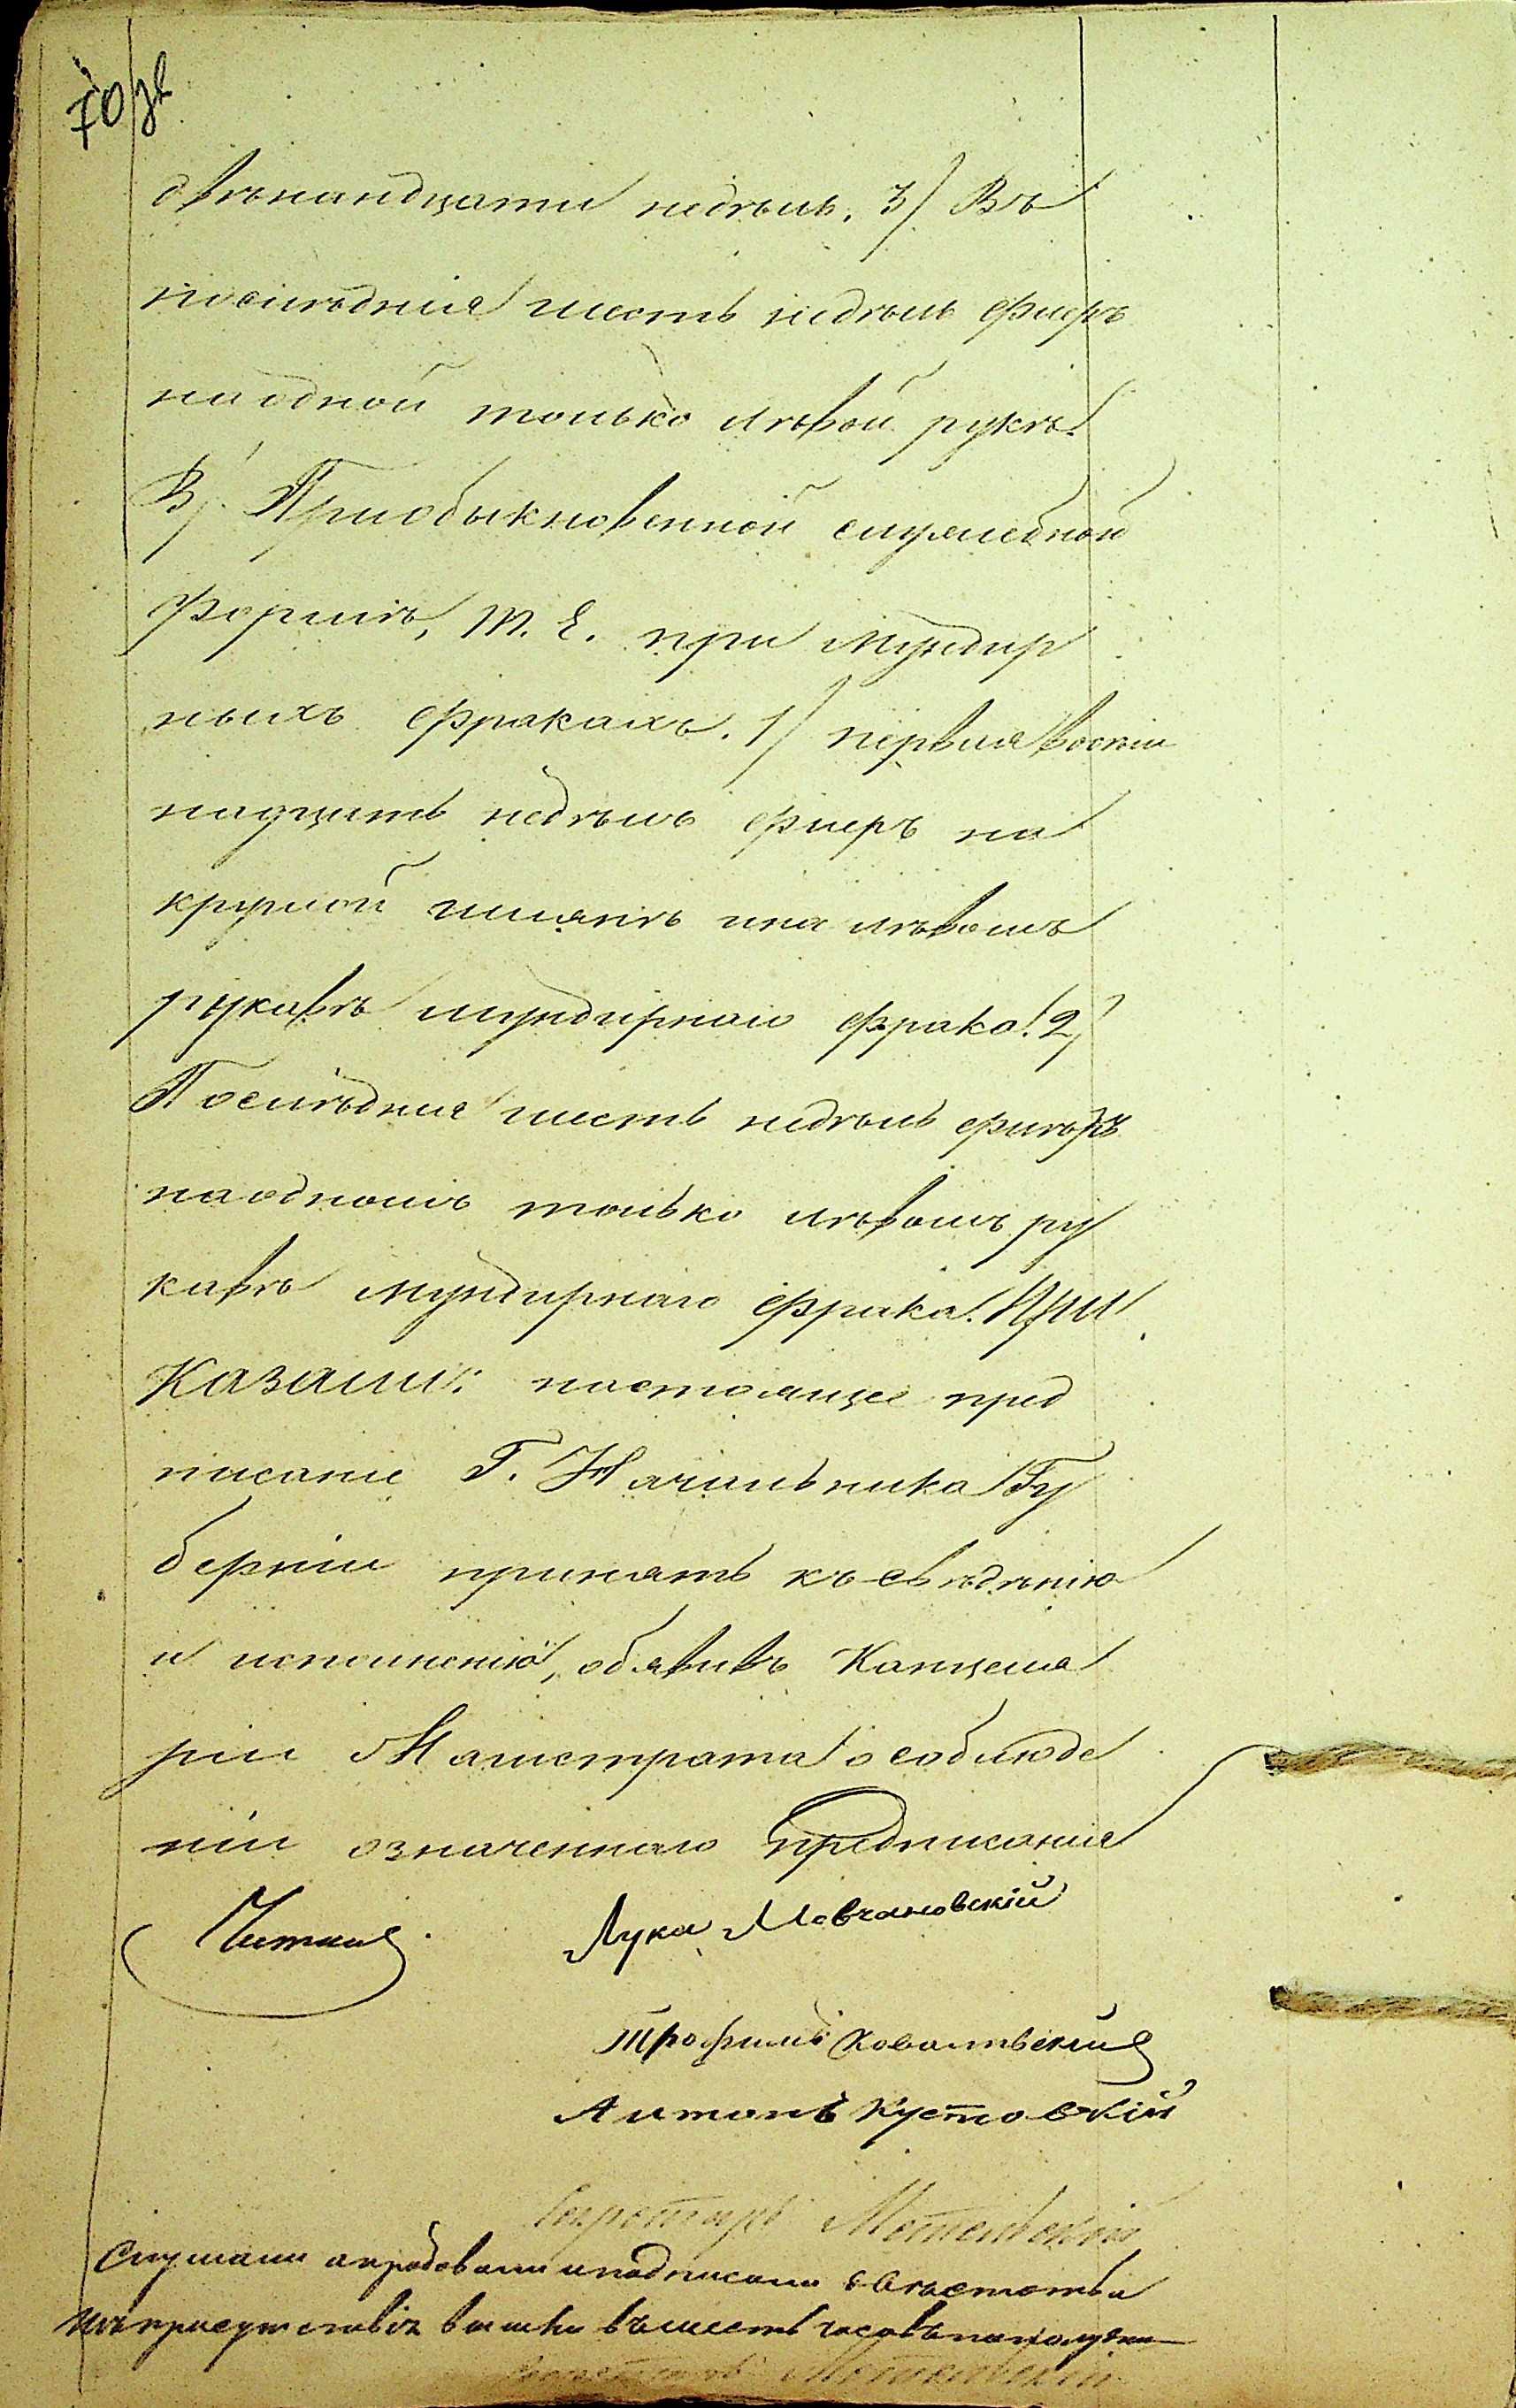 70 зв
двѣнандцати недѣль. 3/ Въ
послѣдния шесть недѣль флеръ
на одной только лѣвой рукѣ.
В/. При обыкновенной служебной
Формѣ, т. е. при мундир
ныхъ фракахъ. 1/ первыя восемь
надцать недѣль флеръ на
круглой шляпѣ и на лѣвомъ
рукавѣ мундирнаго фрака. 2/
Послѣдния шесть недѣль флѣръ
на одномъ только лѣвомъ ру
кавѣ мундирнаго фрака. При
казали: настоящее пред
писаніе Г. Начальника Гу
берніи принять къ свѣдѣнію
и исполненію, обявивъ Канцеля
ріи Магистрата о соблюде
ніи означеннаго предписания
Лука Мовчановскій
Трофимъ Ковалевский
Антонъ Кустовскій
Секретарь
Слушали апробовали и подписали
Изъ присуствія вышли въ шесть часовъ пополудни